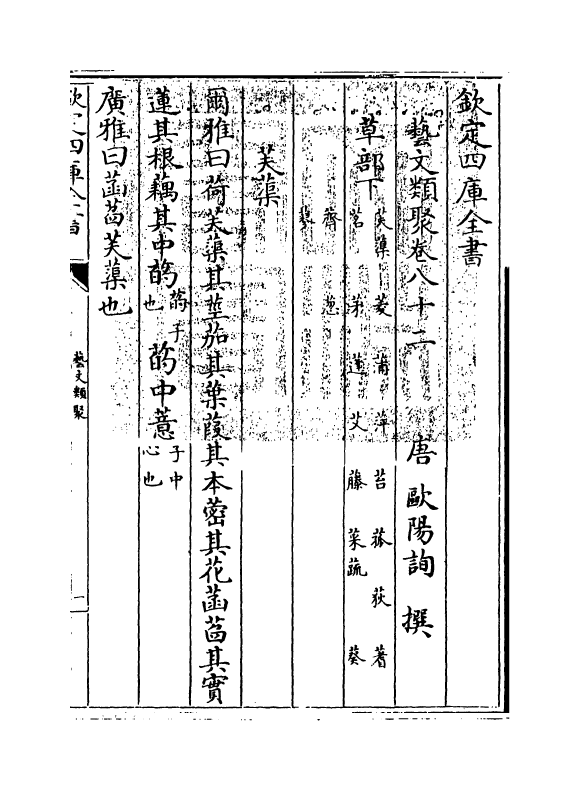 欽定四庫全書
藝文類聚卷八十二
唐 歐陽詢 撰
草部下
芙蕖 菱 蒲 萍 苔 菰 荻 蓍
茗 茅 蓬 艾 藤 菜蔬 葵
薺 葱
蓼
芙蕖
爾雅曰荷芙蕖其莖茄其葉葭其本蔤其花菡萏其實
蓮其根藕其中的蔐子也的中薏子中心也
廣雅曰菡萏芙蕖也
欽定四庫全書
藝文類聚
一